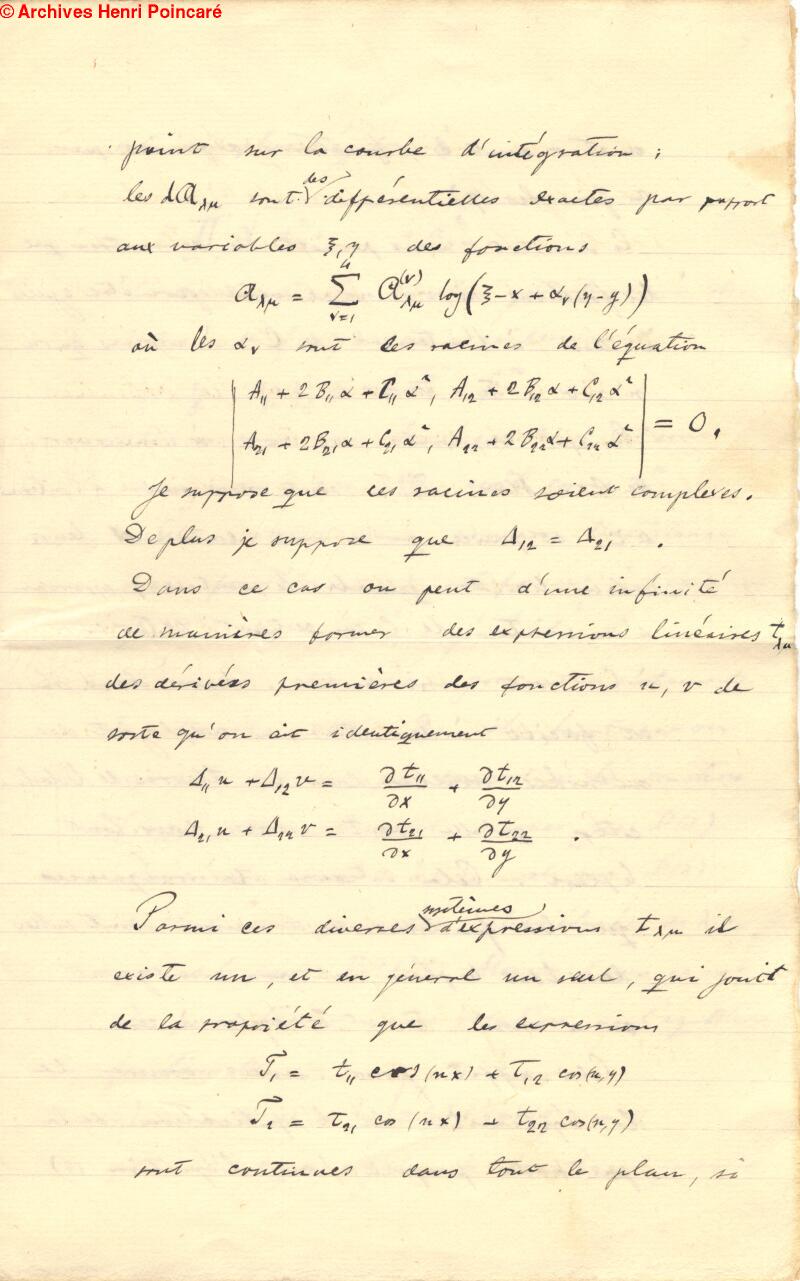 © Archives Henri Poincaré
point sur la courbe d'intégration ;
les dαλμ sont des différentielles exactes par rapport
aux variables ξ, η des fonctions
αλμ = Σ_{ν=1}^{4} α_{λμ}^{(ν)} log(ξ-x + αν(η-y))
où les αν sont les racines de l'équation
| A₁₁ + 2B₁₁α + C₁₁α², A₁₂ + 2B₁₂α + C₁₂α² |
| A₂₁ + 2B₂₁α + C₂₁α², A₂₂ + 2B₂₂α + C₂₂α² | = 0.
Je suppose que ces racines soient complexes.
De plus je suppose que Δ₁₂ = Δ₂₁ .
Dans ce cas on peut d'une infinité
de manières former des expressions linéaires tλμ
des dérivées premières des fonctions u, v de
sorte qu'on ait identiquement
Δ₁₁u + Δ₁₂v = ∂t₁₁/∂x + ∂t₁₂/∂y
Δ₂₁u + Δ₂₂v = ∂t₂₁/∂x + ∂t₂₂/∂y .
Parmi ces diverses systèmes d'expressions tλμ il
existe un, et en général un seul, qui jouit
de la propriété que les expressions
T₁ = t₁₁ cos(nx) + t₁₂ cos(n,y)
T₂ = t₂₁ cos(nx) + t₂₂ cos(n,y)
sont continues dans tout le plan, si